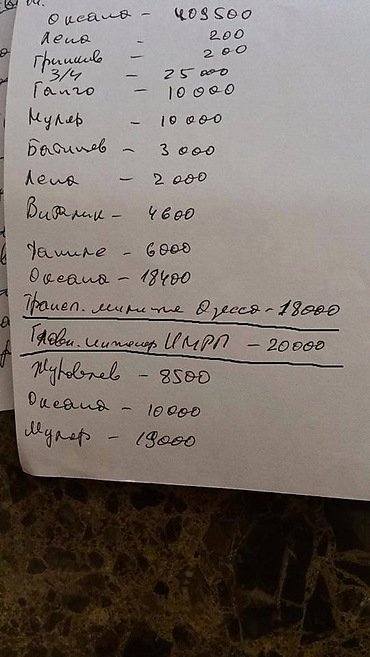 Оксана - 409500
Лена - 200
Гришков - 200
З/Ч - 25 000
Ганго - 10 000
Муляр - 10 000
Батищев - 3 000
Лена - 2 000
Виталик - 4600
- 6000
Оксана - 18400
Трансп. милиция Одесса - 18000
Главн. инженер ИМРП - 20000
Журавлев - 8500
Оксана - 10000
Муляр - 19000